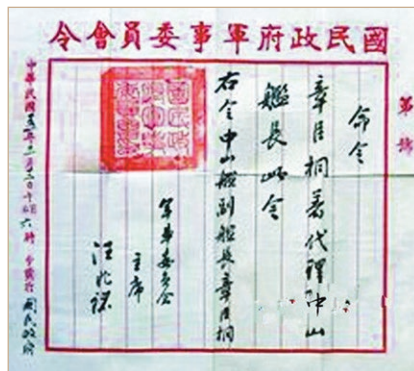 國民政府軍事委員會令
第 號
命令
章臣桐著代理中山
艦長此令
右令中山艦副艦長章臣桐
軍事委員會
主席
汪兆銘
中華民國 年三月 日 六時 國民政府